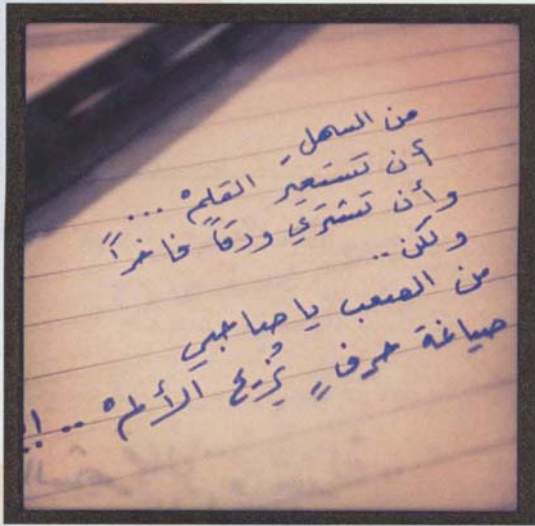 من السهلِ
أن تستعيرَ القلمْ ...
وأن تشتري ورقاً فاخراً
ولكن ..
من الصعب يا صاحبي
صياغة حرفٍ يُزيح الألمْ .. !!